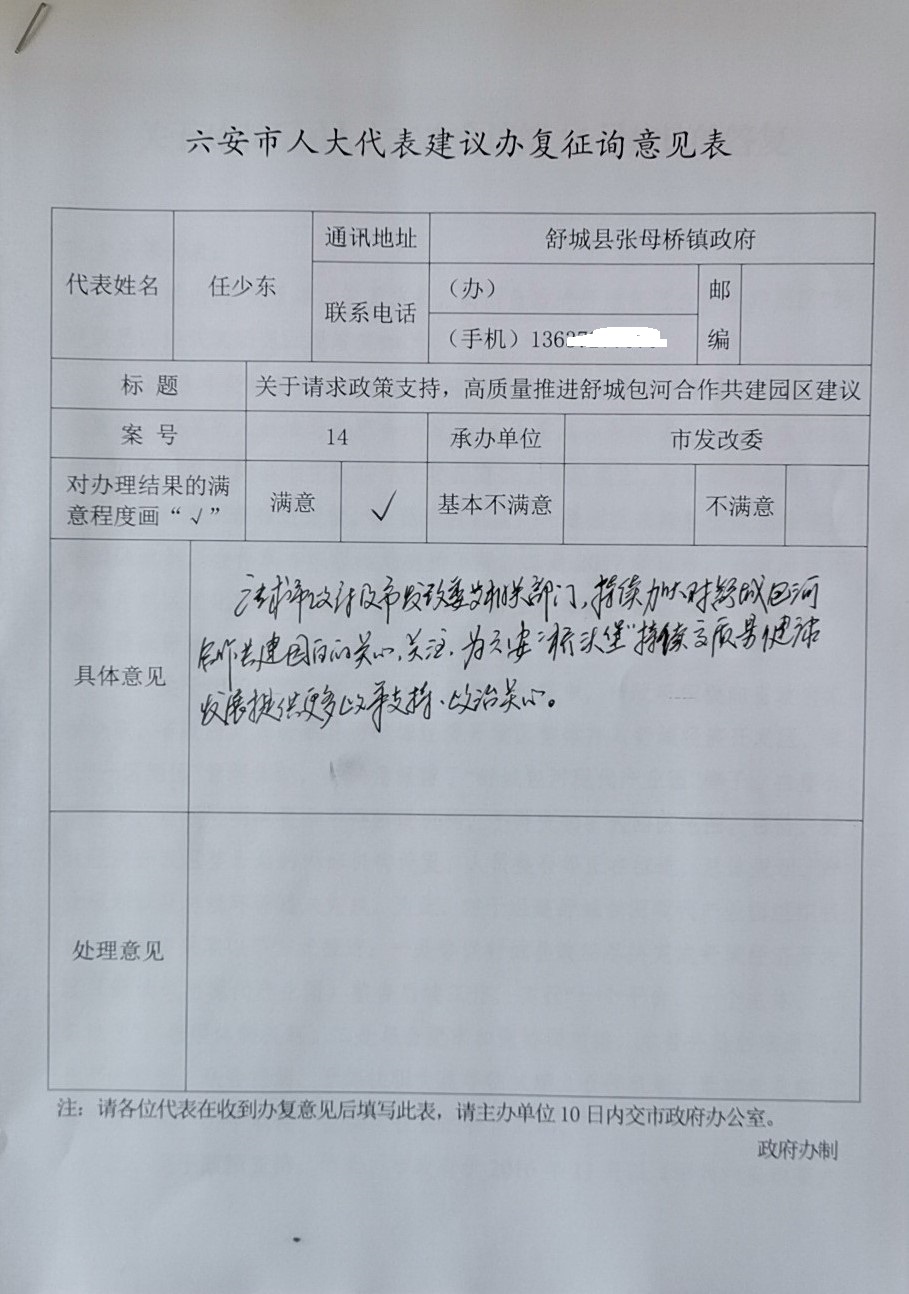 六安市人大代表建议办复征询意见表
代表姓名 任少东 通讯地址 舒城县张母桥镇政府
联系电话 （办） 邮编
（手机）136
标 题 关于请求政策支持，高质量推进舒城包河合作共建园区建议
案 号 14 承办单位 市发改委
对办理结果的满
意程度画“√” 满意 √ 基本不满意 不满意
具体意见
请求市政府及市发改委等相关部门，持续加大对舒城包河
合作共建园区的关心、关注，为六安“桥头堡”持续高质量健康
发展提供更多政策支持、政治关心。
处理意见
注：请各位代表在收到办复意见后填写此表，请主办单位10日内交市政府办公室。
政府办制